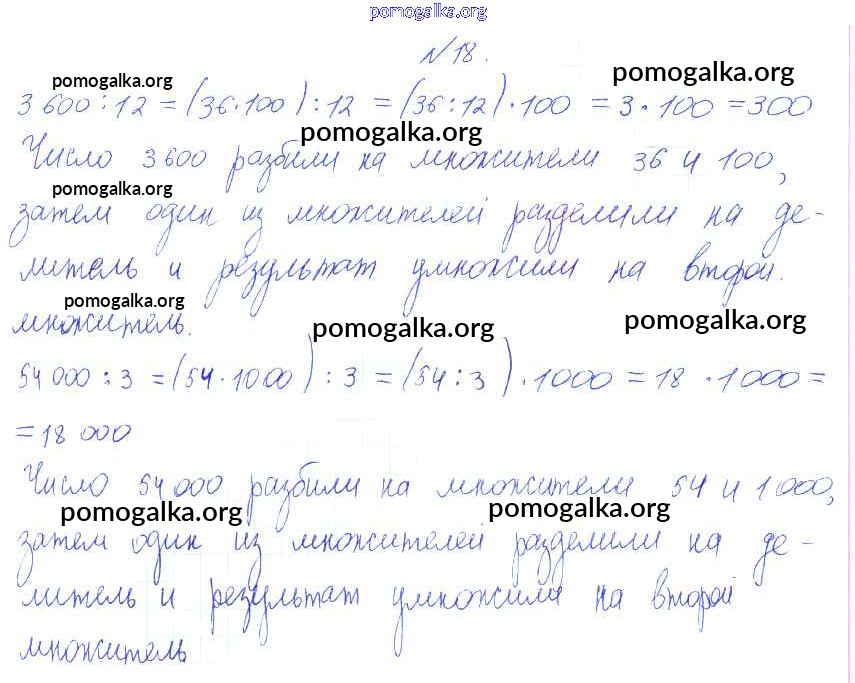 pomogalka.org
№18.
pomogalka.org
pomogalka.org
3 600 : 12 = (36·100) : 12 = (36:12)·100 = 3·100 = 300
pomogalka.org
Число 3600 разбили на множители 36 и 100,
pomogalka.org
затем один из множителей разделили на де-
литель и результат умножили на второй.
pomogalka.org
множитель.
pomogalka.org
pomogalka.org
54 000 : 3 = (54·1000) : 3 = (54:3)·1000 = 18·1000 =
= 18 000
Число 54 000 разбили на множители 54 и 1 000,
pomogalka.org
pomogalka.org
затем один из множителей разделили на де-
литель и результат умножили на второй
множитель